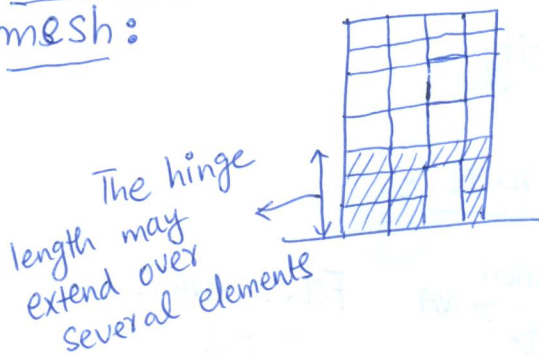 mesh:
The hinge
length may
extend over
several elements